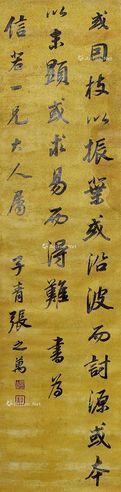 或因枝以振葉或沿波而討源或本
以末顯或求易而得難 書為
信若一兄大人屬 子青張之萬